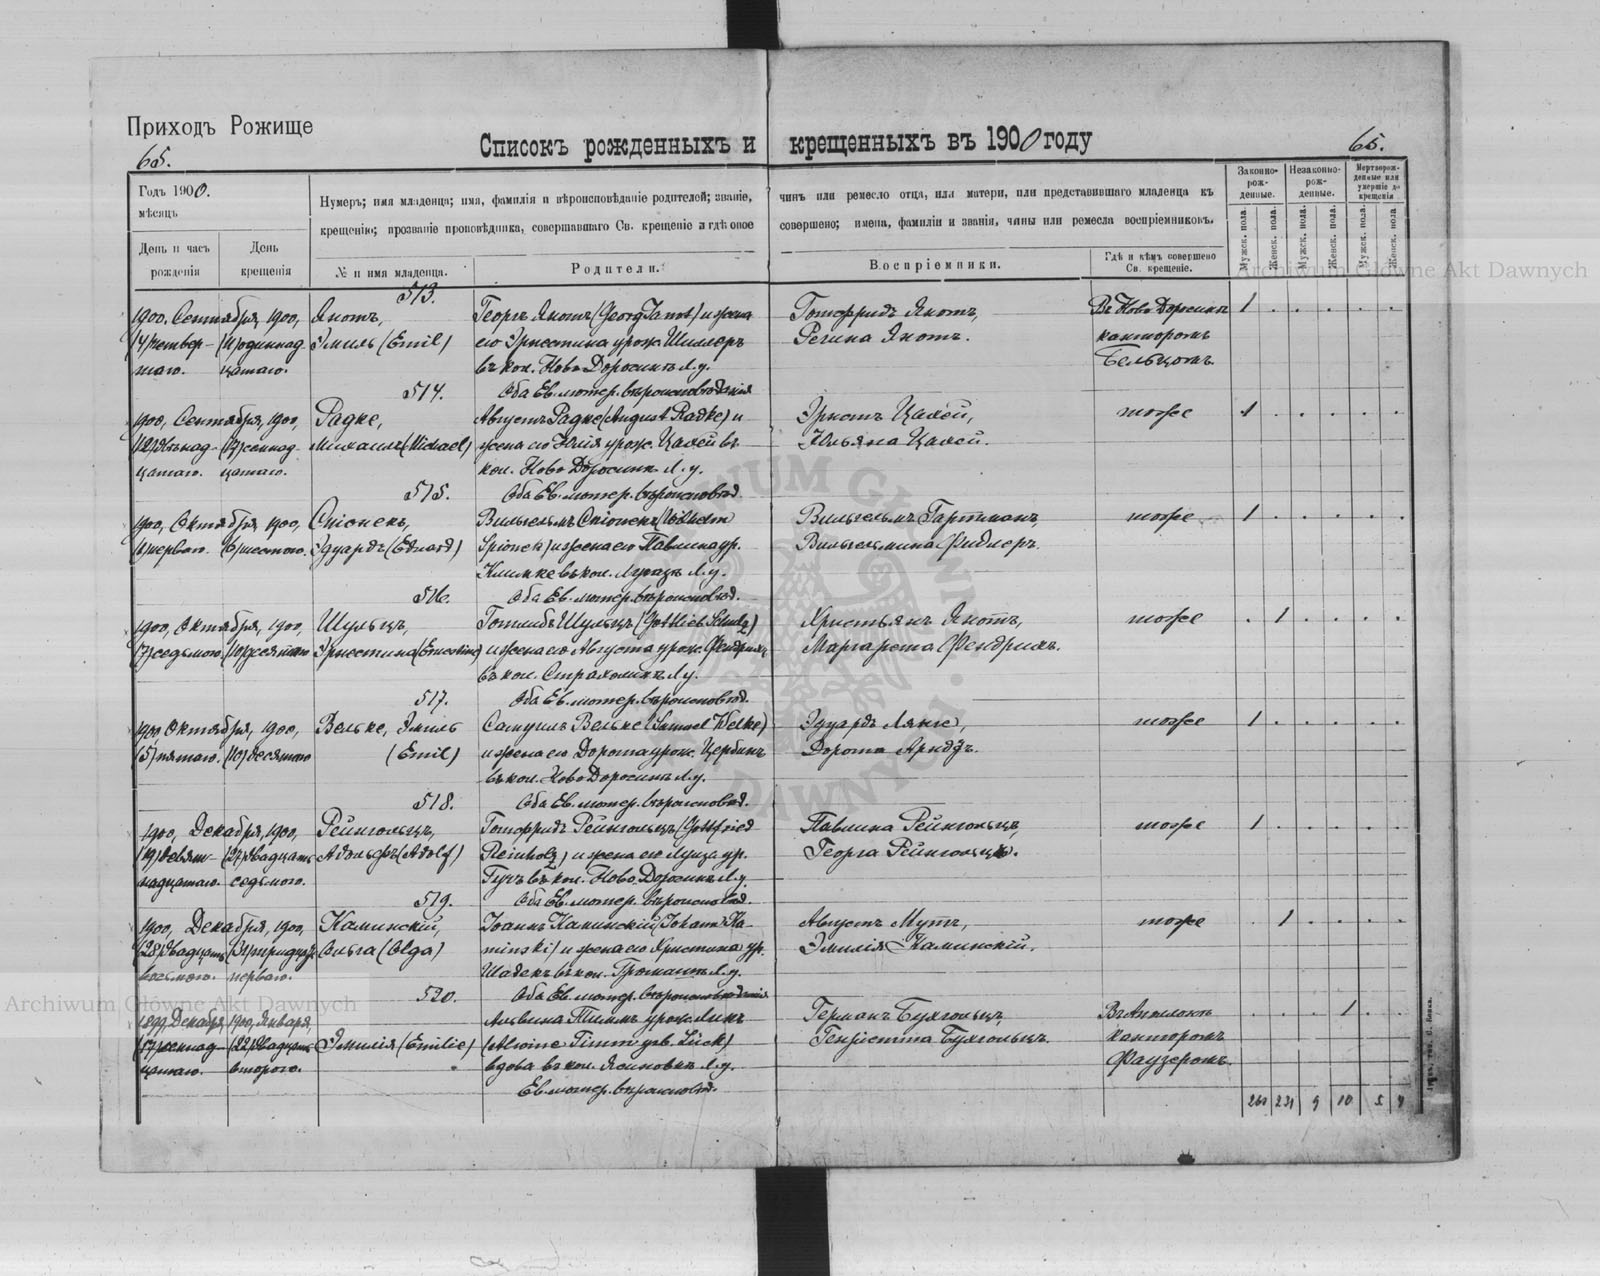 Приходъ Рожище
65.
Списокъ рожденныхъ и крещенныхъ въ 1900 году
65.
Годъ 1900.
мѣсяцъ
День и часъ рожденія
День крещенія
Нумеръ; имя младенца; имя, фамилія и вѣроисповѣданіе родителей; званіе, чинъ или ремесло отца, или матери, или представившаго младенца къ
крещенію; прозваніе проповѣдника, совершавшаго Св. крещеніе и гдѣ оное совершено; имена, фамиліи и званія, чины или ремесла воспріемниковъ.
№ и имя младенца.
Родители.
Воспріемники.
Гдѣ и кѣмъ совершено Св. крещеніе.
Законно-рож-денные.
Незаконно-рож-денные.
Мертворож-денные или умершіе до крещенія
Мужск. пола.
Женск. пола.
Мужск. пола.
Женск. пола.
Мужск. пола.
Женск. пола.
513.
1900. Сентября, 1900, Янотъ, Георгъ Янотъ (Georg Janot) и жена Готфридъ Янотъ, Въ Ново Доросинѣ 1
(4) четвер- (11) одиннад- Эмиль (Emil) его Эрнестина урож. Шиллеръ Регина Янотъ. канторомъ
таго. цатаго. въ кол. Ново Доросинъ Л. у. Бельцомъ.
514. Оба Ев. лютер. вѣроисповѣданія
1900, Сентября, 1900, Радке, Августъ Радке (August Radke) и Эрнстъ Цалей, тоже 1
(12) двѣнад- (17) семнад- Михаилъ (Michael) жена его Юлія урож. Цалей въ Юльяна Цалей.
цатаго. цатаго. кол. Ново Доросинъ Л. у.
515. Оба Ев. лютер. вѣроисповѣд.
1900, Октября 1900, Спіонекъ, Вильгельмъ Спіонекъ (Wilhelm Вильгельмъ Гартманъ, тоже 1
(1) перваго. (6) шестого. Эдуардъ (Eduard) Spionek) и жена его Павлина ур. Вильгельмина Фидлеръ.
Климке въ кол. Л. у.
516. Оба Ев. лютер. вѣроисповѣд.
1900, Октября, 1900, Шульцъ, Готлибъ Шульцъ (Gottlieb Schulz) Христьянъ Янотъ, тоже 1
(7) седьмого (10) десятаго Эрнестина (Ernestine) и жена его Августа урож. Фендрихъ Маргарета Фендрихъ.
въ кол. Страхолинъ Л. у.
517. Оба Ев. лютер. вѣроисповѣд.
1900 Октября, 1900, Вельке, Эмиль Самуилъ Вельке (Samuel Welke) Эдуардъ Лянге, тоже 1
(5) пятаго. (10) десятаго (Emil) и жена его Дорота урож. Цербинъ Дорота Арндтъ.
въ кол. Ново Доросинъ Л. у.
518. Оба Ев. лютер. вѣроисповѣд.
1900, Декабря, 1900, Рейнгольцъ, Готфридъ Рейнгольцъ (Gottfried Павлина Рейнгольцъ, тоже 1
(19) девят- (27) двадцать Адольфъ (Adolf) Reinholz) и жена его Луиза ур. Георга Рейнгольцъ.
надцатаго. седьмого. въ кол. Ново Доросинъ Л. у.
519. Оба Ев. лютер. вѣроисповѣд.
1900, Декабря, 1900, Каминскій, Іоаннъ Каминскій (Johann Ka- Августъ Мутъ, тоже 1
(28) двадцать (31) тридцать Ольга (Olga) minski) и жена его Христина ур. Эмилія Каминскій.
восьмого. перваго. Шадекъ въ кол. Л. у.
520. Оба Ев. лютер. вѣроисповѣданія
1899, Декабря, 1900, Января, Альвина Тиммъ урож. Ликъ Германъ Бухгольцъ, Въ канторомъ 1
(17) семнад- (22) двадцать Эмилія (Emilie) (Alwine Timm geb. Lück) Генріетта Бухгольцъ.
цатаго. второго. вдова въ кол. Ясиновка Л. у. Фаузеромъ.
Ев. лютер. вѣроисповѣд.
261 231 9 10 5 7
Archiwum Główne Akt Dawnych
Archiwum Główne Akt Dawnych